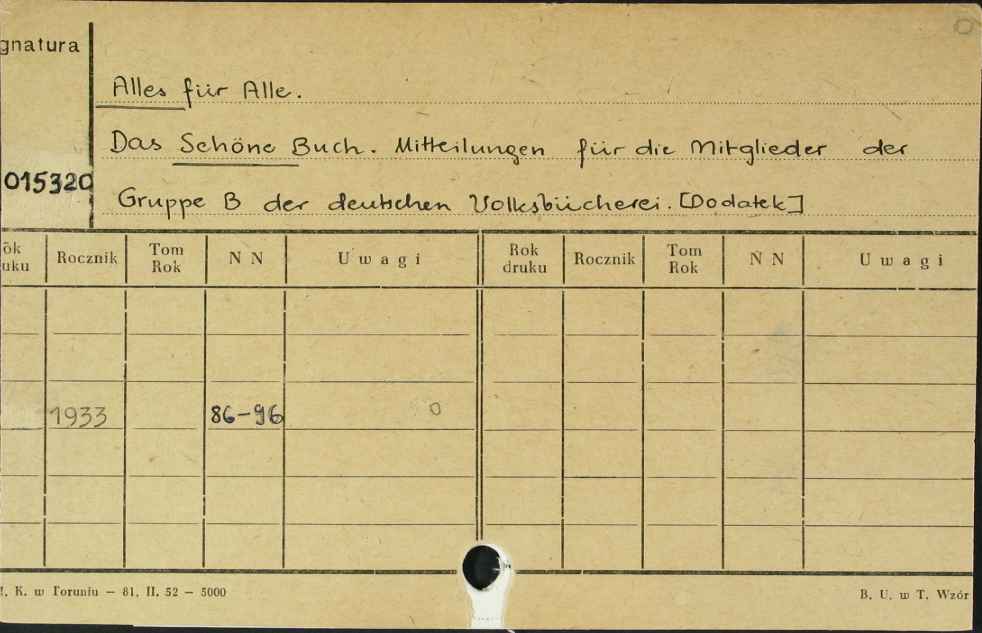 gnatura
Alles für Alle.
Das Schöne Buch. Mitteilungen für die Mitglieder der
015320
Gruppe B der deutschen Volksbücherei. [Dodatek]
ok
uku
Rocznik
Tom
Rok
N N
Uwagi
Rok
druku
Rocznik
Tom
Rok
N N
Uwagi
1933
86-96
0
K. w Toruniu – 81. II. 52 – 5000
B. U. w T. Wzór